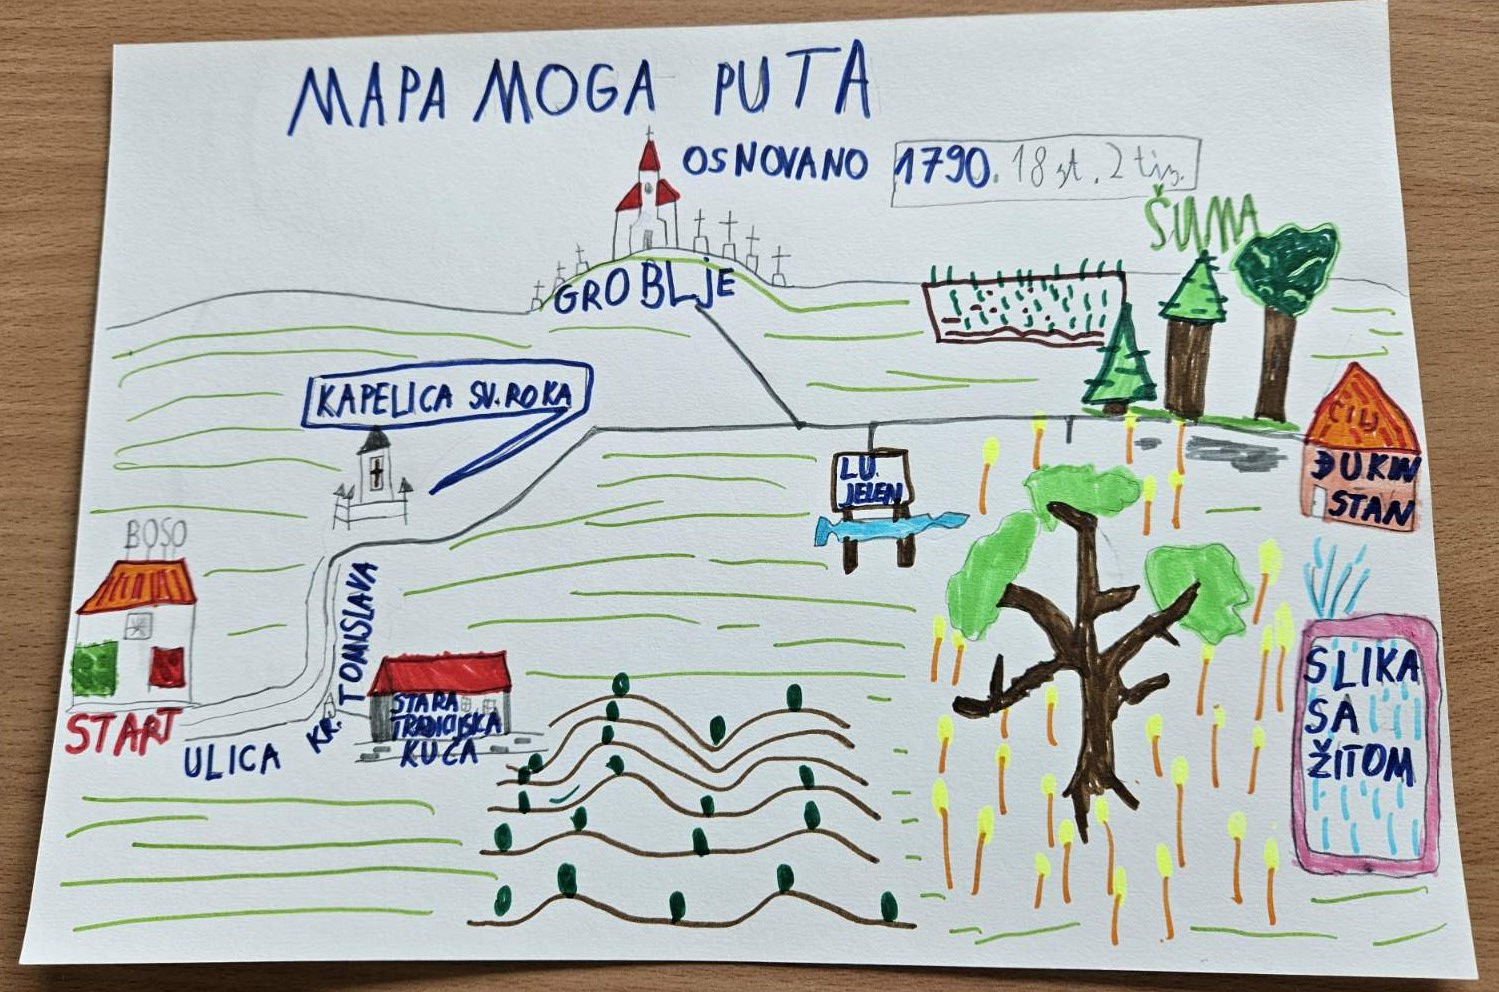 MAPA MOGA PUTA
OSNOVANO 1790. 18 st. 2 tis.
ŠUMA
GROBLJE
KAPELICA SV. ROKA
CILJ
ĐUKIN
STAN
LU.
JELEN
BOSO
KR. TOMISLAVA
STARA
TRADICIJSKA
KUĆA
START
ULICA
SLIKA
SA
ŽITOM